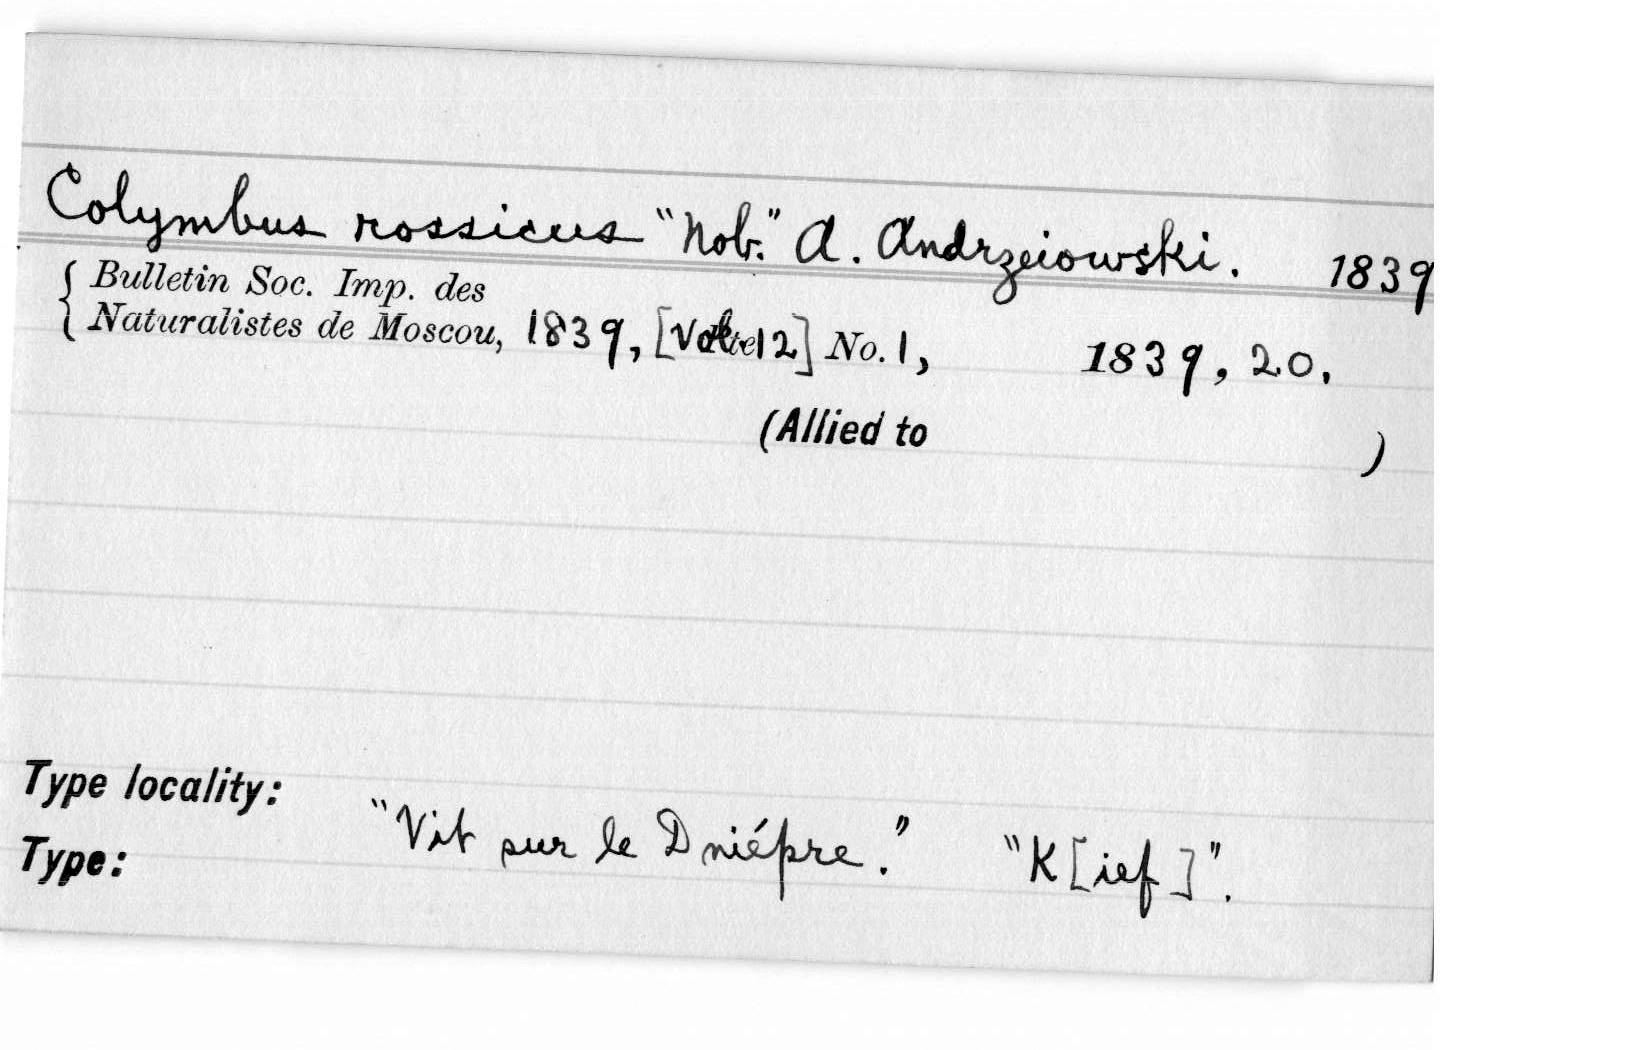 Colymbus rossicus "Nob." A. Andrzeiowski. 1839
{ Bulletin Soc. Imp. des
Naturalistes de Moscou, 1839, [Vol. 12] No. 1, 1839, 20.
(Allied to )
Type locality: "Vit sur le Dniépre." "K[ief]".
Type: